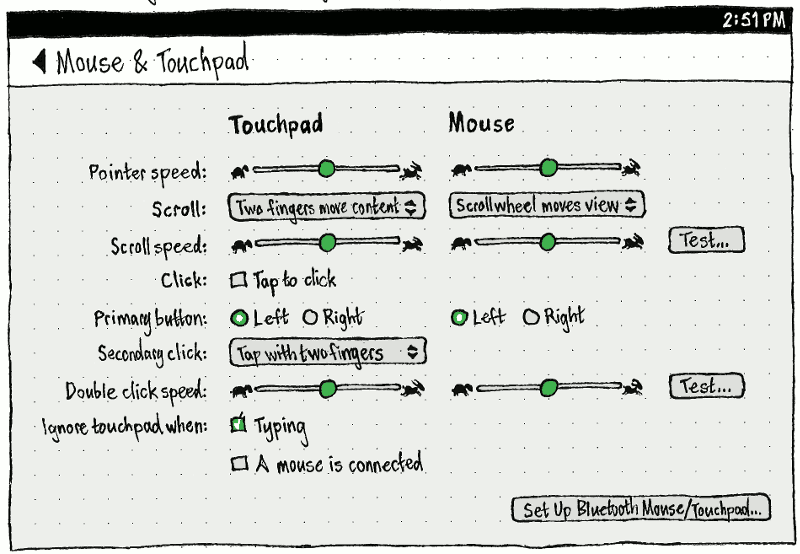 2:51PM
Mouse & Touchpad
Touchpad Mouse
Pointer speed:
Scroll: Two fingers move content Scrollwheel moves view
Scroll speed: Test...
Click: Tap to click
Primary button: Left Right Left Right
Secondary click: Tap with two fingers
Double click speed: Test...
Ignore touchpad when: Typing
A mouse is connected
Set Up Bluetooth Mouse/Touchpad...